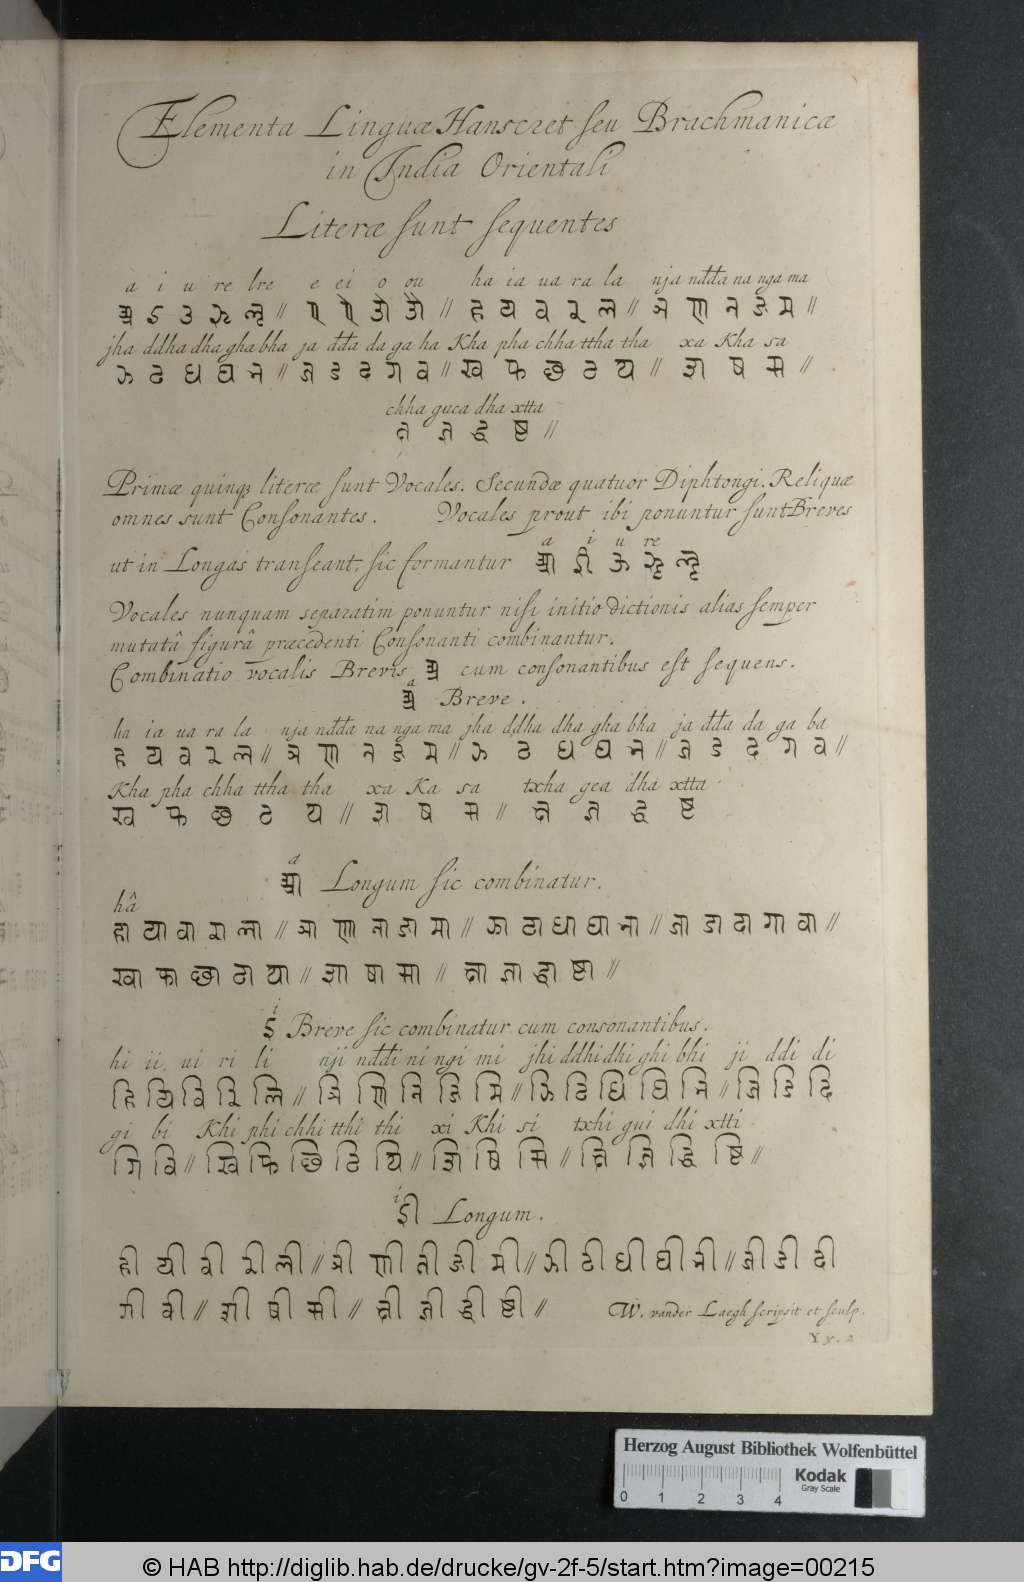 Elementa Linguæ Hanscret seu Brachmanicæ
in India Orientali
Literæ sunt sequentes
a i u re lre e ei o ou ha ia ua ra la nja ndda na nga ma
अ इ उ ऋ ऌ // ए ऐ ओ औ // ह य व र ल // ञ ण न ङ म //
jha ddha dha gha bha ja dda da ga ba Kha pha chha ttha tha xa Kha sa
झ ढ ध घ भ // ज ड द ग व // ख फ छ ठ थ // श ष स //
chha guca dha xtta
Primæ quinq3 literæ sunt Vocales. Secundæ quatuor Diphtongi. Reliquæ
omnes sunt Consonantes. Vocales prout ibi ponuntur sunt Breves
a i u re
ut in Longas transeant, sic formantur आ ई ऊ ॠ ॡ
Vocales nunquam separatim ponuntur nisi initio dictionis alias semper
mutatâ figurâ præcedenti Consonanti combinantur.
Combinatio vocalis Brevis अ cum consonantibus est sequens.
a
अ Breve.
ha ia ua ra la nja ndda na nga ma jha ddha dha gha bha ja dda da ga ba
ह य व र ल // ञ ण न ङ म // झ ढ ध घ भ // ज ड द ग व //
Kha pha chha ttha tha xa Ka sa txha gea dha xtta
ख फ छ ठ थ // श ष स // क्ष ज्ञ द्ध ष्ट
a
आ Longum sic combinatur.
hâ
हा या वा रा ला // ञा णा ना ङा मा // झा ढा धा घा भा // जा डा दा गा वा //
खा फा छा ठा था // शा षा सा // क्षा ज्ञा द्धा ष्टा //
i
इ Breve sic combinatur cum consonantibus.
hi ii ui ri li nji nddi ni ngi mi jhi ddhi dhi ghi bhi ji ddi di
हि यि वि रि लि // ञि णि नि ङि मि // झि ढि धि घि भि // जि डि दि
gi bi Khi phi chhi tthi thi xi Khi si txhi gui dhi xtti
गि वि // खि फि छि ठि थि // शि षि सि // क्षि ज्ञि द्धि ष्टि //
i
ई Longum.
ही यी वी री ली // ञी णी नी ङी मी // झी ढी धी घी भी // जी डी दी
गी वी // शी षी सी // क्षी ज्ञी द्धी ष्टी //
W. vander Laegh scripsit et sculp.
Yy. 2
Herzog August Bibliothek Wolfenbüttel
Kodak
Gray Scale
0 1 2 3 4
DFG
© HAB http://diglib.hab.de/drucke/gv-2f-5/start.htm?image=00215